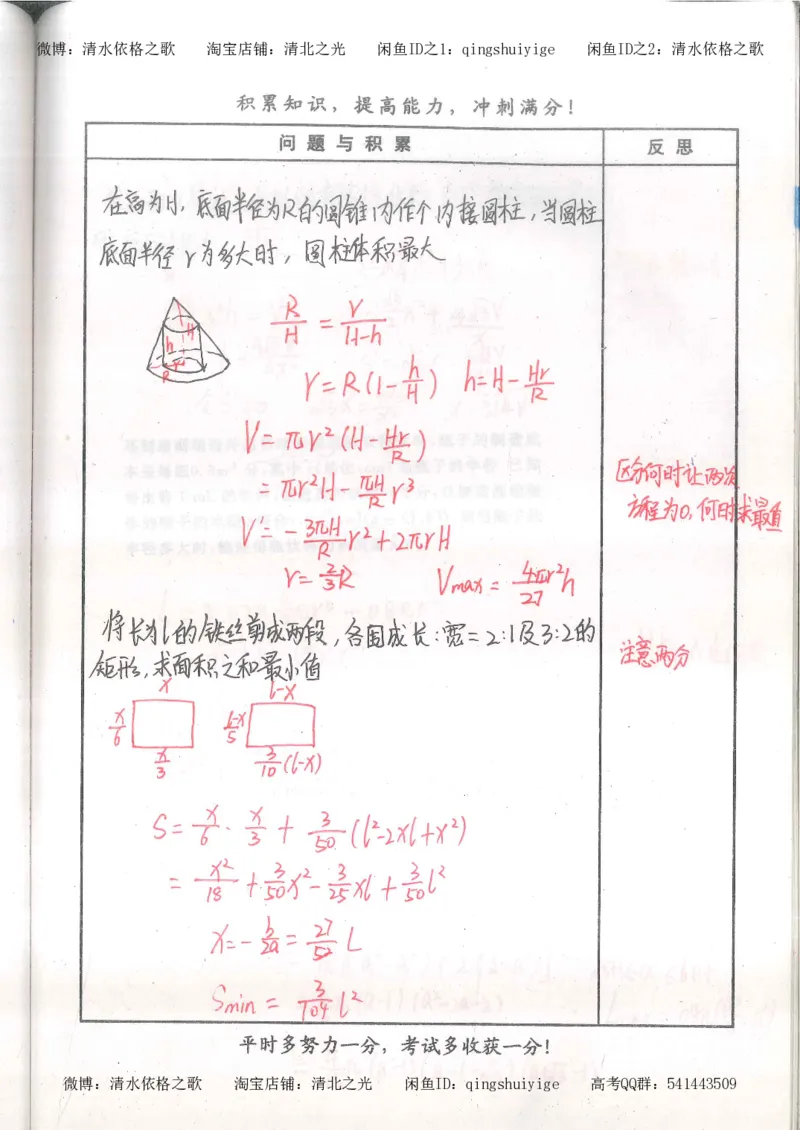 微博：清水依格之歌 淘宝店铺：清北之光 闲鱼ID之1：qingshuiyige 闲鱼ID之2：清水依格之歌
积累知识，提高能力，冲刺满分！
问题与积累 反思
在高为H，底面半径为R的圆锥内作个内接圆柱，当圆柱
底面半径r为多大时，圆柱体积最大
H
h
R r
R/H = r/(H-h)
r=R(1-h/H) h=H-Hr/R
V=πr²(H-Hr/R)
=πr²H-πH/R r³
V'=-3πH/R r²+2πrH
r=2/3R Vmax=4πr²h/27
区分何时让两次
方程为0,何时求最值
将长为l的铁丝剪成两段，各围成长:宽=2:1及3:2的
矩形，求面积之和最小值
注意两分
x l-x
x/6 (l-x)/5
x/3 3/10(l-x)
S=x/6·x/3+3/50(l²-2xl+x²)
=x²/18+3/50x²-3/25xl+3/50l²
x=-b/2a=27/52L
Smin=3/104l²
平时多努力一分，考试多收获一分！
微博：清水依格之歌 淘宝店铺：清北之光 闲鱼ID：qingshuiyige 高考QQ群：541443509